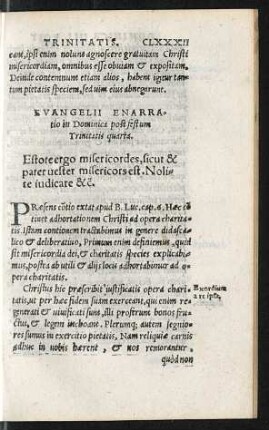 TRINITATIS. CLXXXII
eant, ipsi enim nolunt agnoscere gratuitam Christi
misericordiam, omnibus esse obuiam & expositam.
Deinde contemnunt etiam alios, habent igitur tan-
tum pietatis speciem, sed uim eius abnegarunt.
EVANGELII ENARRA-
tio in Dominica post festum
Trinitatis quarta.
Estote ergo misericordes, sicut &
pater uester misericors est. Noli-
te iudicare &c.
PRæsens cōtio extat apud B. Luc. cap. 6. Hæc cō
tinet adhortationem Christi ad opera charita-
tis. Istam contionem tractabimus in genere didasca-
lico & deliberatiuo, Primum enim definiemus, quid
sit misericordia dei, & charitatis species explicabi-
mus, postea ab utili & alijs locis adhortabimur ad o-
pera charitatis.
Christus hic præscribit iustificatis opera chari-
tatis, ut per hæc fidem suam exerceant, qui enim re-
generati & uiuificati sunt, illi prostrunt bonos fru-
ctus, & legem inchoant. Plerumq; autem segnio-
res sumus in exercitio pietatis. Nam reliquiæ carnis
adhuc in nobis hærent, & nos remorantur,
quod non